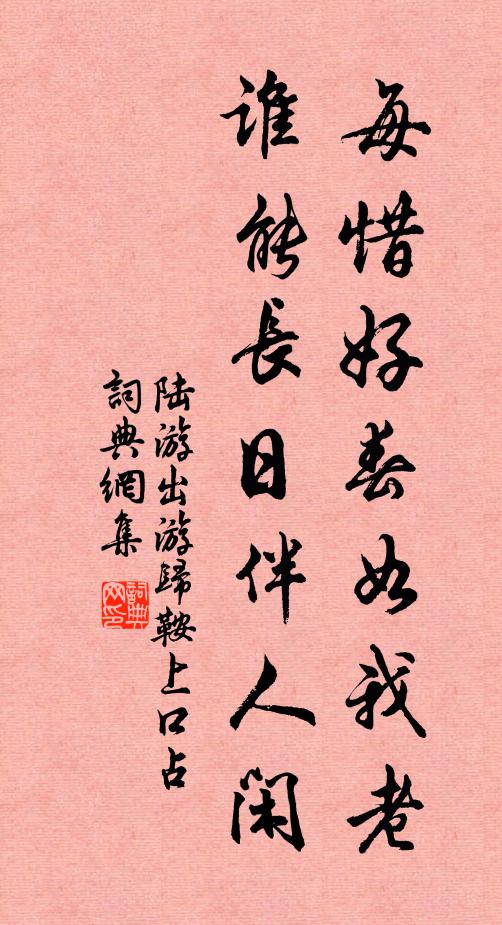 每惜好春如我老
誰能長日伴人閑
陆游出游歸鞍上口占
詞典網集
詞典网印